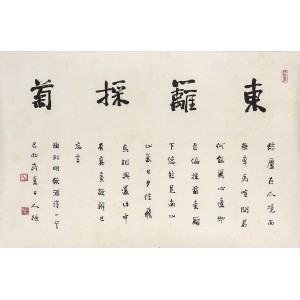 東籬採菊
結廬在人境而
無車馬喧問君
何能爾心遠地
自偏採菊東籬
下悠然見南山
山氣日夕佳飛
鳥相與還此中
有真意欲辯已
忘言
陶淵明飲酒詩一首